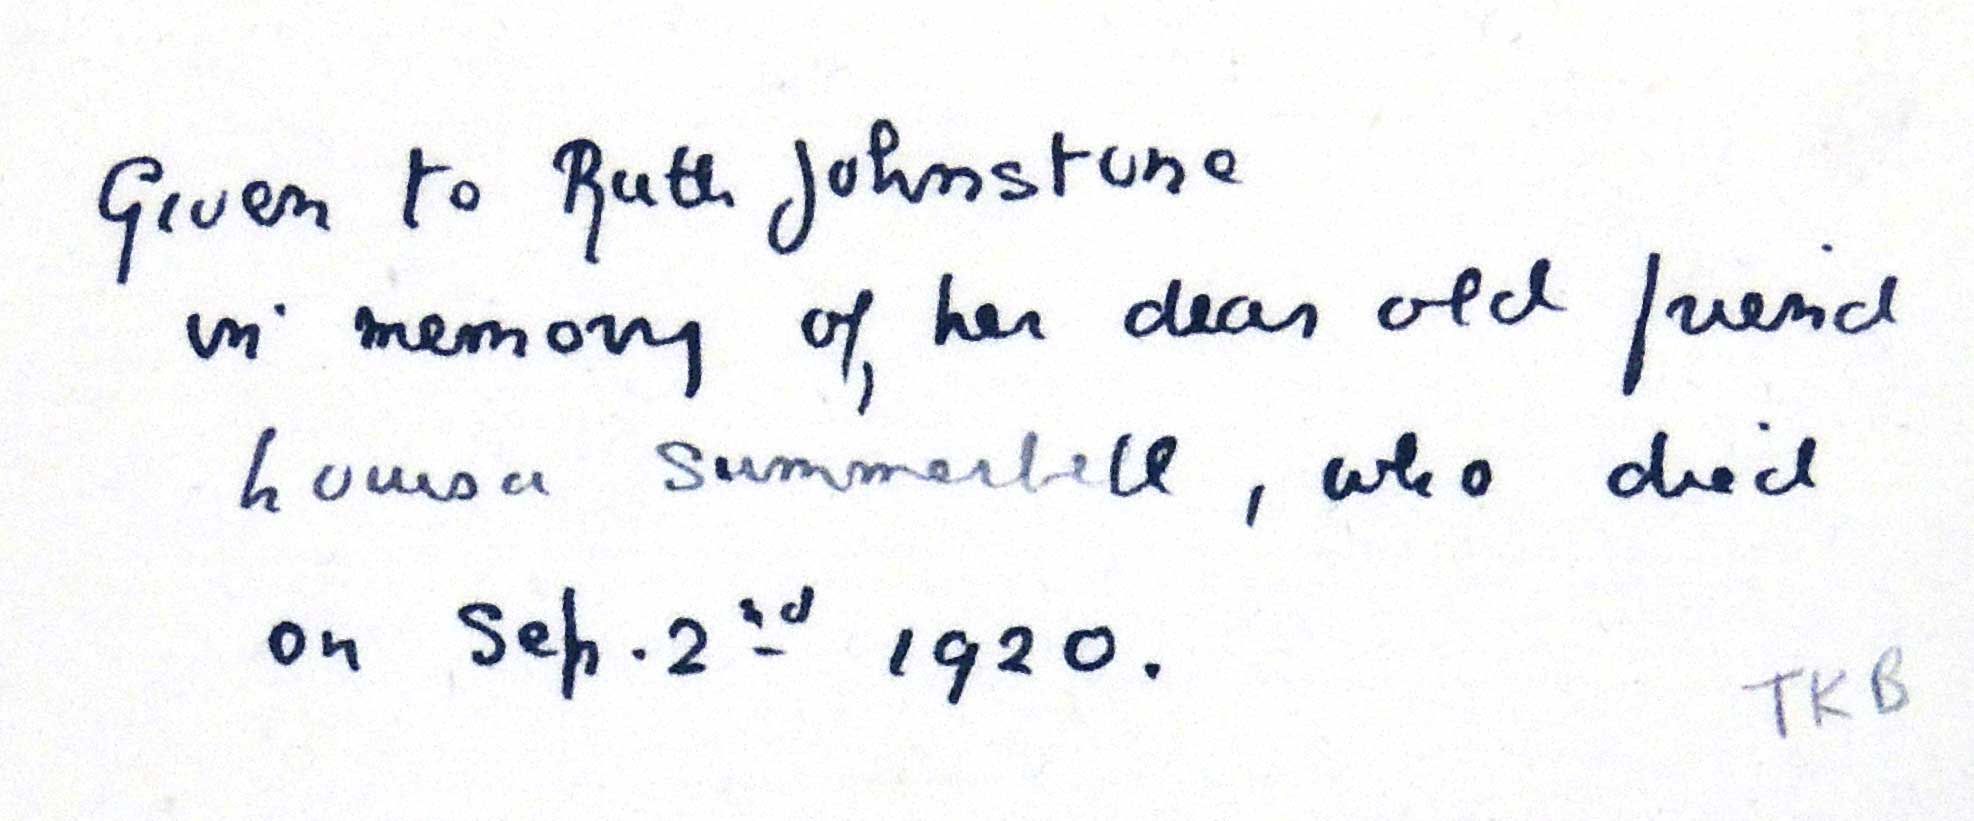 Given to Ruth Johnstone
in memory of, her dear old friend
Louisa Summerbell, who died
on Sep. 2nd 1920.
TKB